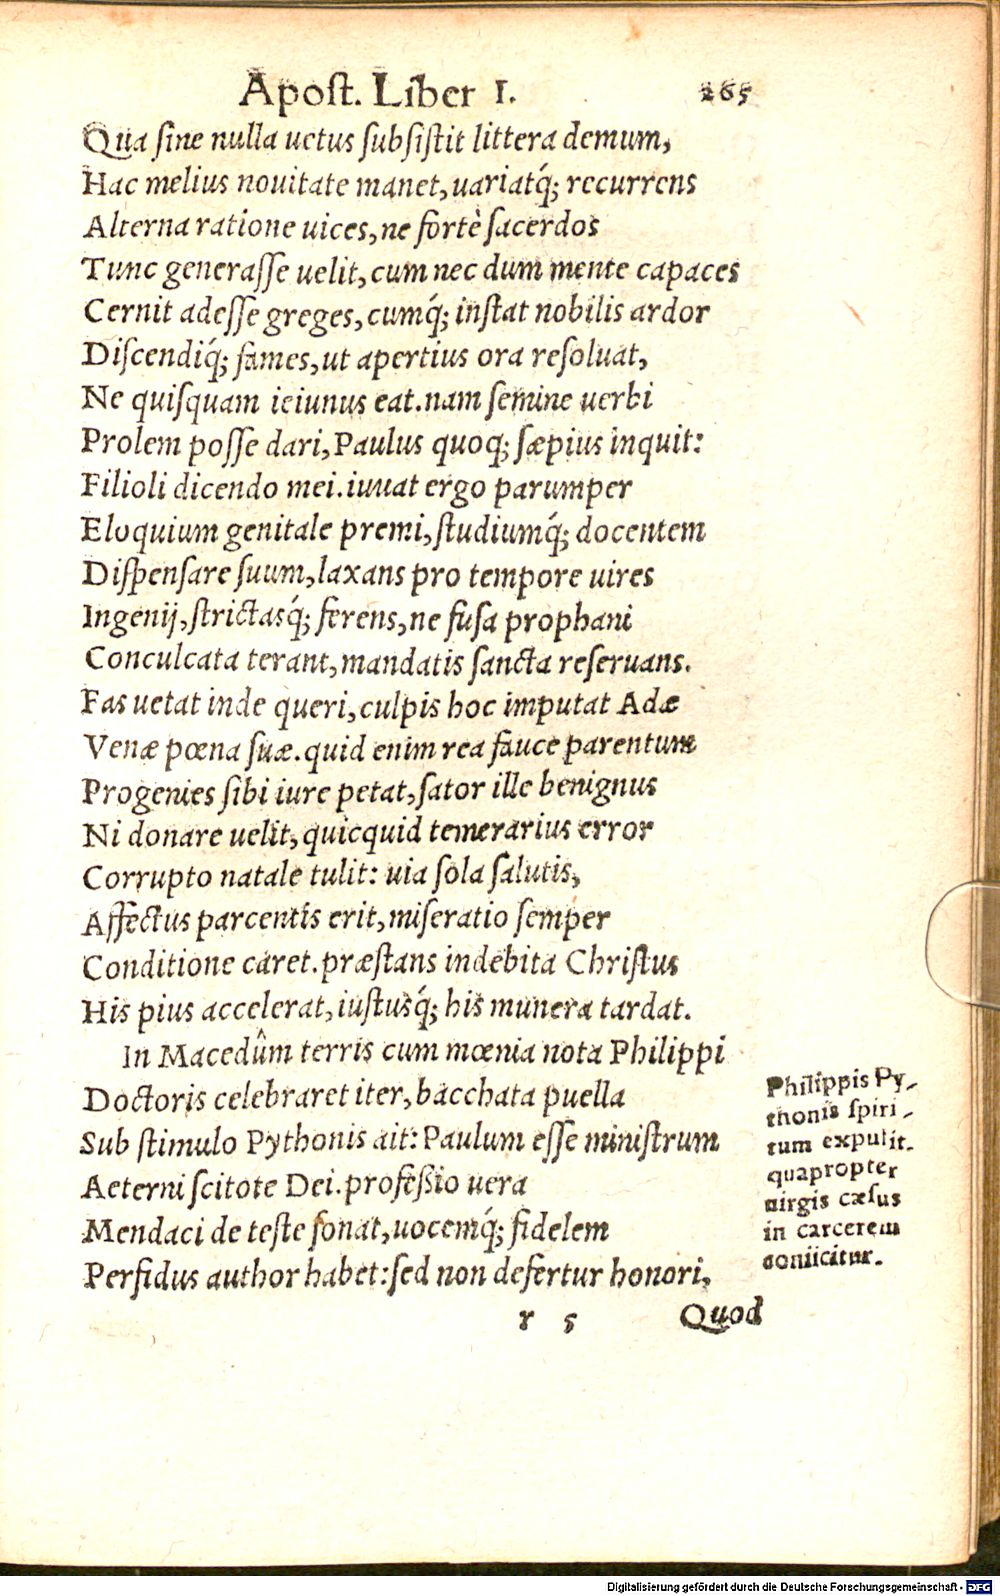 Apost. Liber I. 265
Qua sine nulla uetus subsistit littera demum,
Hac melius nouitate manet, uariatq́; recurrens
Alterna ratione uices, ne fortè sacerdos
Tunc generasse uelit, cum nec dum mente capaces
Cernit adesse greges, cumq́; instat nobilis ardor
Discendiq́; fames, ut apertius ora resoluat,
Ne quisquam ieiunus eat. nam semine uerbi
Prolem posse dari, Paulus quoq; sæpius inquit:
Filioli dicendo mei. iuuat ergo parumper
Eloquium genitale premi, studiumq́; docentem
Dispensare suum, laxans pro tempore uires
Ingenij, strictasq́; ferens, ne fusa prophani
Conculcata terant, mandatis sancta reseruans.
Fas uetat inde queri, culpis hoc imputat Adæ
Venæ pœna suæ. quid enim rea fauce parentum
Progenies sibi iure petat, sator ille benignus
Ni donare uelit, quicquid temerarius error
Corrupto natale tulit: uia sola salutis,
Affectus parcentis erit, miseratio semper
Conditione caret. præstans indebita Christus
His pius accelerat, iustusq́; his munera tardat.
In Macedûm terris cum mœnia nota Philippi
Doctoris celebraret iter, bacchata puella
Sub stimulo Pythonis ait: Paulum esse ministrum
Aeterni scitote Dei. professio uera
Mendaci de teste sonat, uocemq́; fidelem
Perfidus author habet: sed non defertur honori,
Philippis Py-
thonis spiri-
tum expulit.
quapropter
uirgis cæsus
in carcerem
coniicitur.
r 5 Quod
Digitalisierung gefördert durch die Deutsche Forschungsgemeinschaft - DFG